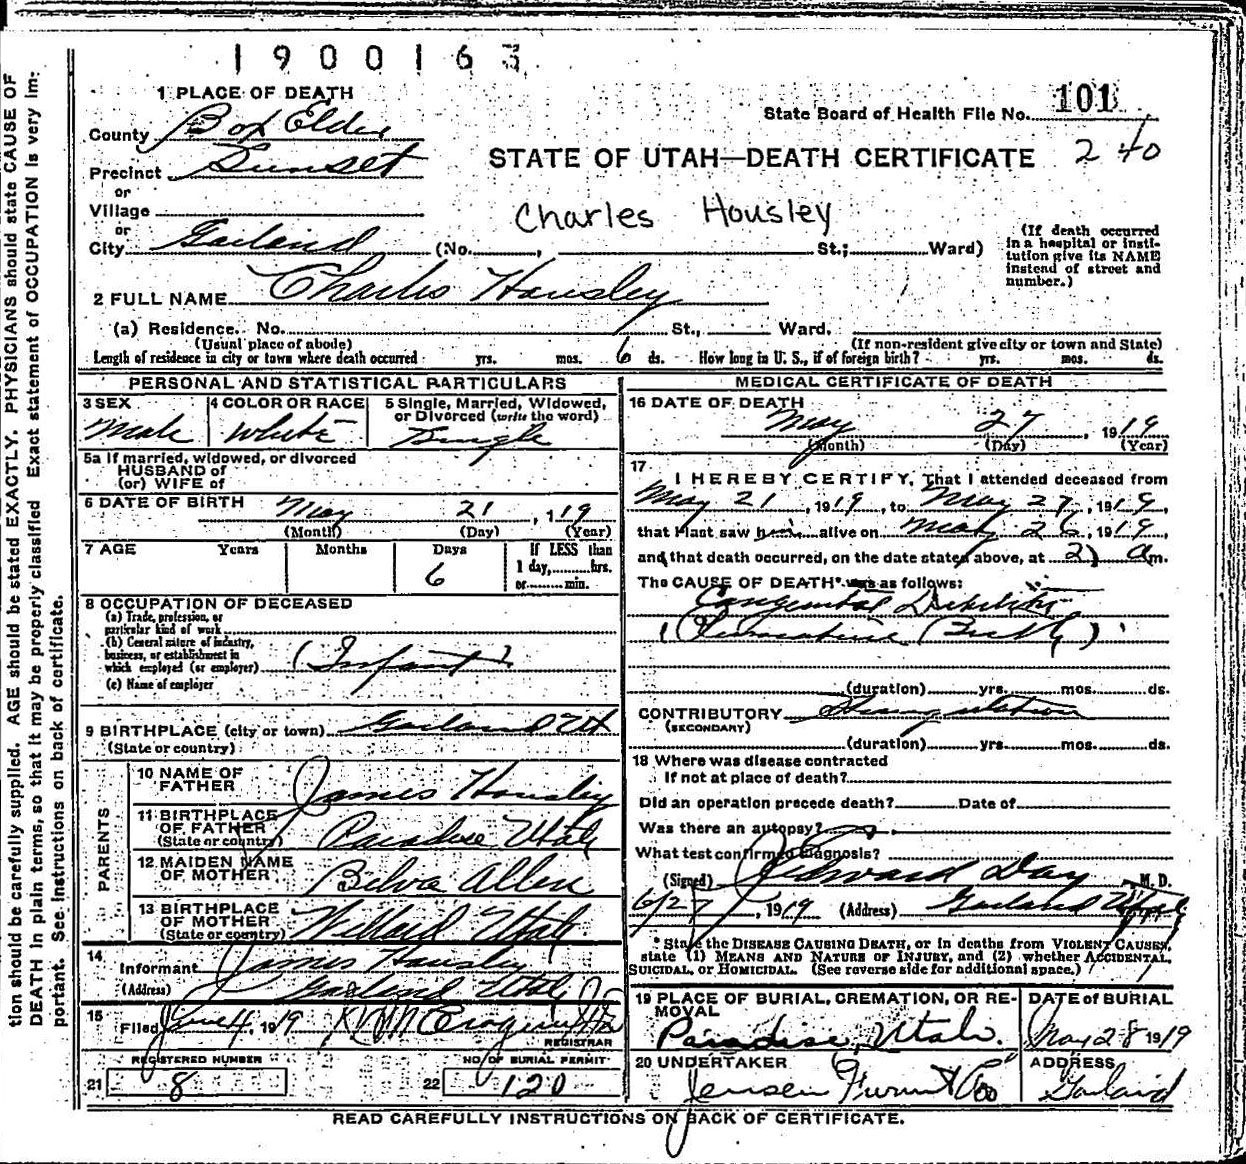 1900163
1 PLACE OF DEATH
County Box Elder
State Board of Health File No. 101
Precinct Sunset
STATE OF UTAH—DEATH CERTIFICATE 240
or
Village
or
Charles Housley
City Garland (No. , St.; Ward)
(If death occurred in a hospital or insti-
tution give its NAME instead of street and number.)
2 FULL NAME Charles Housley
(a) Residence. No. St., Ward.
(Usual place of abode) (If non-resident give city or town and State)
Length of residence in city or town where death occurred yrs. mos. 6 ds. How long in U. S., if of foreign birth? yrs. mos. ds.
PERSONAL AND STATISTICAL PARTICULARS
3 SEX Male
4 COLOR OR RACE White
5 Single, Married, Widowed, or Divorced (write the word) Single
5a If married, widowed, or divorced
HUSBAND of
(or) WIFE of
6 DATE OF BIRTH May 21, 1919
(Month) (Day) (Year)
7 AGE Years Months Days 6
If LESS than
1 day, hrs.
or min.
8 OCCUPATION OF DECEASED
(a) Trade, profession, or
particular kind of work
(b) General nature of industry,
business, or establishment in
which employed (or employer) (Infant)
(c) Name of employer
9 BIRTHPLACE (city or town) Garland Ut
(State or country)
PARENTS
10 NAME OF FATHER James Housley
11 BIRTHPLACE OF FATHER (State or country) Paradise Utah
12 MAIDEN NAME OF MOTHER Allen
13 BIRTHPLACE OF MOTHER (State or country) Willard Utah
14
Informant James Housley
(Address) Garland Utah
15
Filed June 4, 1919
REGISTRAR
REGISTERED NUMBER
21 8
NO. OF BURIAL PERMIT
22 120
MEDICAL CERTIFICATE OF DEATH
16 DATE OF DEATH
May 27, 1919
(Month) (Day) (Year)
17
I HEREBY CERTIFY, That I attended deceased from
May 21, 1919, to May 27, 1919,
that I last saw him alive on May 26, 1919,
and that death occurred, on the date stated above, at 2 am.
The CAUSE OF DEATH* was as follows:
Congenital Debility
(Premature Birth)
(duration) yrs. mos. ds.
CONTRIBUTORY Strangulation
(SECONDARY)
(duration) yrs. mos. ds.
18 Where was disease contracted
If not at place of death?
Did an operation precede death? Date of
Was there an autopsy?
What test confirmed diagnosis?
(Signed) Edward Day M. D.
6/27, 1919 (Address) Garland Utah
* State the DISEASE CAUSING DEATH, or in deaths from VIOLENT CAUSES,
state (1) MEANS AND NATURE OF INJURY, and (2) whether ACCIDENTAL,
SUICIDAL, or HOMICIDAL. (See reverse side for additional space.)
19 PLACE OF BURIAL, CREMATION, OR RE-
MOVAL
Paradise, Utah.
DATE of BURIAL
May 28 1919
20 UNDERTAKER
Jensen Furnt Co
ADDRESS
Garland
READ CAREFULLY INSTRUCTIONS ON BACK OF CERTIFICATE.
tion should be carefully supplied. AGE should be stated EXACTLY. PHYSICIANS should state CAUSE OF
DEATH in plain terms, so that it may be properly classified. Exact statement of OCCUPATION is very im-
portant. See instructions on back of certificate.